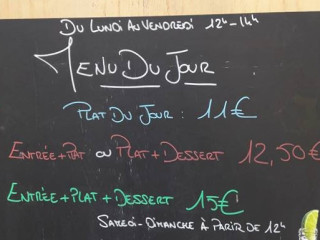 Du Lundi Au Vendredi 12h-14h
Menu Du Jour :
Plat Du Jour : 11€
Entrée+Plat ou Plat+Dessert 12,50€
Entrée+Plat+Dessert 15€
Samedi-Dimanche à Parir de 12h